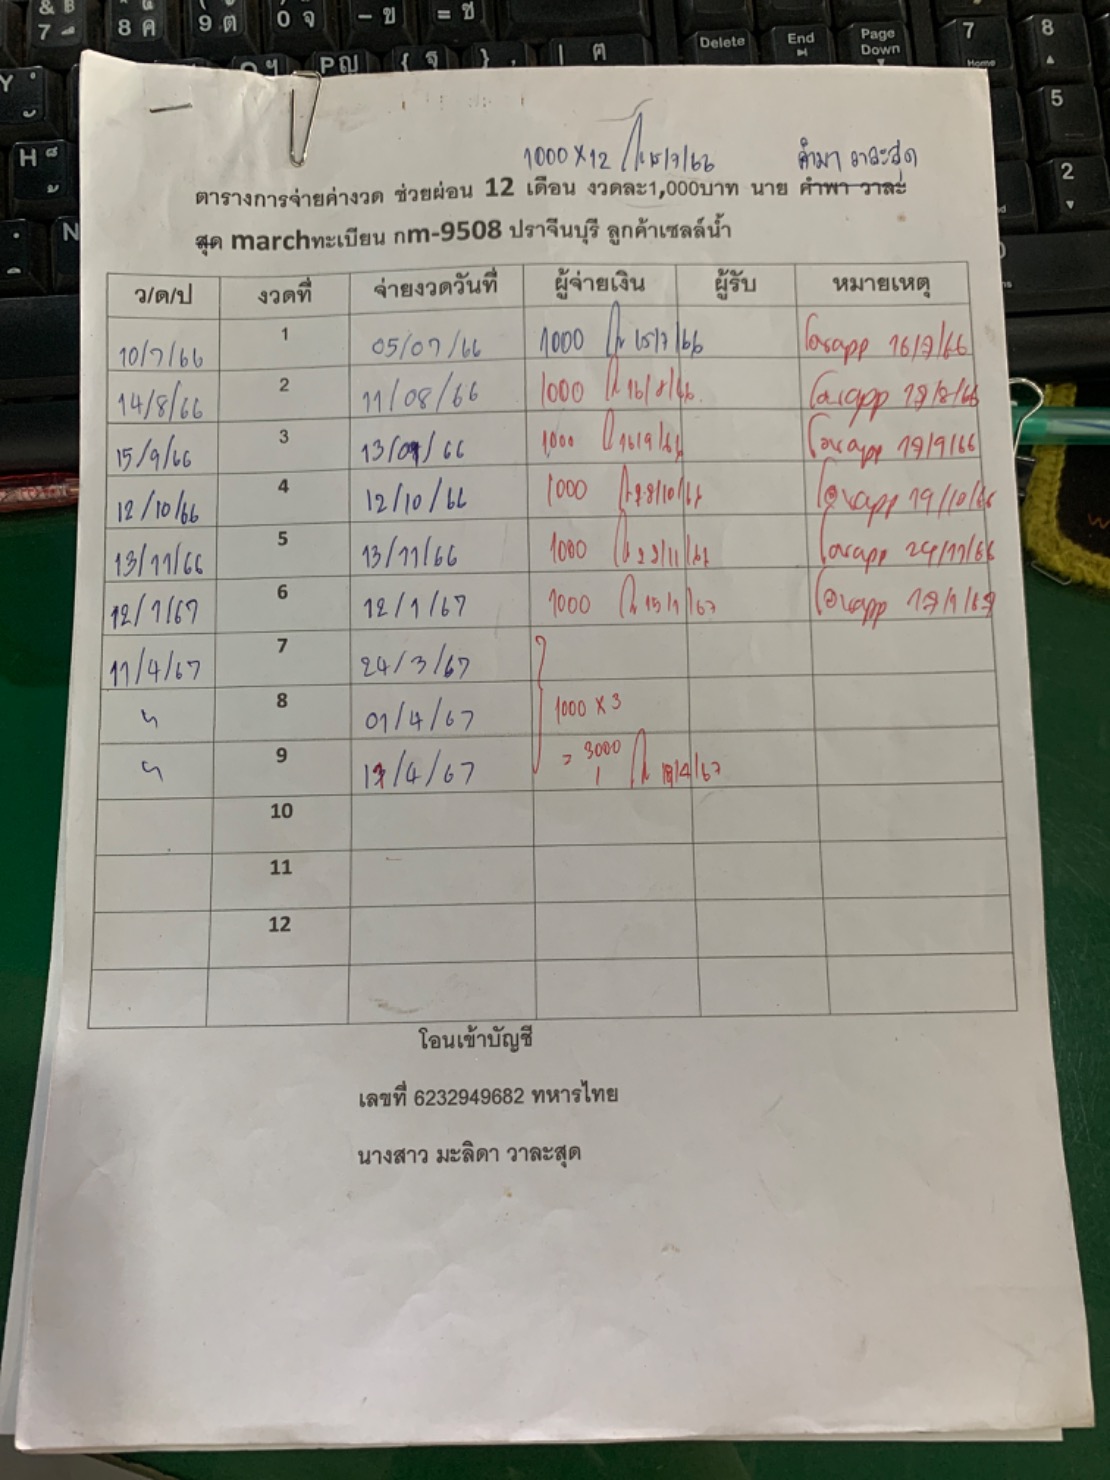 1000 x 12 15/7/66 คำมา วาละสุด
ตารางการจ่ายค่างวด ช่วยผ่อน 12 เดือน งวดละ1,000บาท นาย คำพา วาละ
สุด marchทะเบียน กm-9508 ปราจีนบุรี ลูกค้าเซลล์น้ำ
ว/ด/ป งวดที่ จ่ายงวดวันที่ ผู้จ่ายเงิน ผู้รับ หมายเหตุ
10/7/66 1 05/07/66 1000 15/7/66 โอนapp 16/7/66
14/8/66 2 11/08/66 1000 16/8/66 โอนapp 17/8/66
15/9/66 3 13/09/66 1000 16/9/66 โอนapp 17/9/66
12/10/66 4 12/10/66 1000 โอนapp 19/10/66
13/11/66 5 13/11/66 1000 โอนapp 24/11/66
12/1/67 6 12/1/67 1000 15/1/67 โอนapp 17/1/67
11/4/67 7 24/3/67
" 8 01/4/67 1000 x 3
" 9 11/4/67 = 3000
10
11
12
โอนเข้าบัญชี
เลขที่ 6232949682 ทหารไทย
นางสาว มะลิดา วาละสุด
& 7 8 ค 9 ต 0 จ - ข = ช
Delete End Page Down 7 Home 8
Y P ญ { ฐ } , | ฅ
5
H
2
N